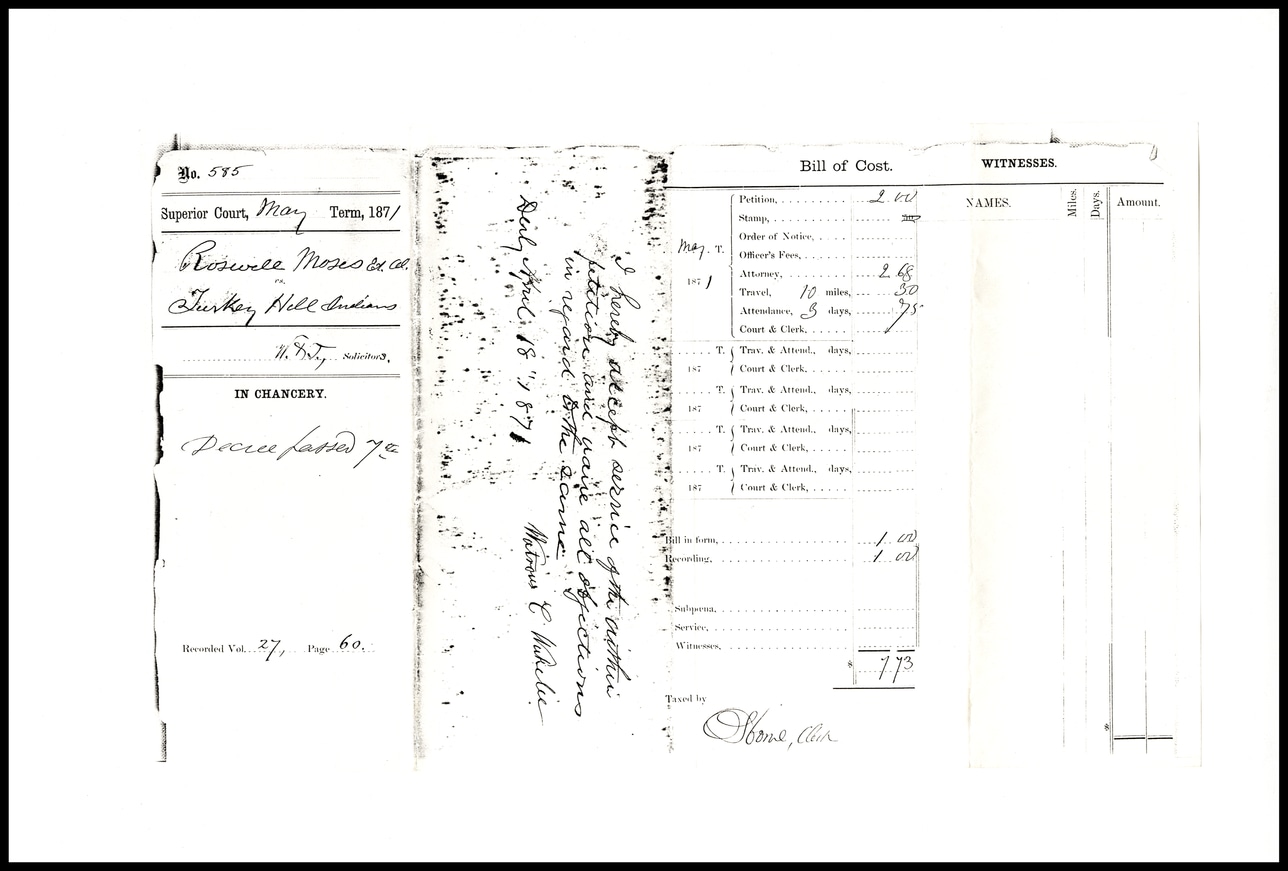 No. 585
Superior Court, May Term, 1871
Roswell Moses Et. Al.
vs.
Turkey Hill Indians
Solicitors,
IN CHANCERY.
Decree passed
Recorded Vol. 27, Page 60.
I hereby accept service of the within
petition and waive all objections
in regard to the same
Derby April 18" 1871
Watrous C Wakelee
Bill of Cost.
May T. 1871
Petition, 2 00
Stamp,
Order of Notice,
Officer's Fees,
Attorney, 2 68
Travel, 10 miles, 30
Attendance, 3 days, 75
Court & Clerk,
T. Trav. & Attend., days,
187 Court & Clerk,
T. Trav. & Attend., days,
187 Court & Clerk,
T. Trav. & Attend., days,
187 Court & Clerk,
T. Trav. & Attend., days,
187 Court & Clerk,
Bill in form, 1 00
Recording, 1 00
Subpœna,
Service,
Witnesses,
$ 7 73
Taxed by
Clerk
WITNESSES.
NAMES. Miles. Days. Amount.
$